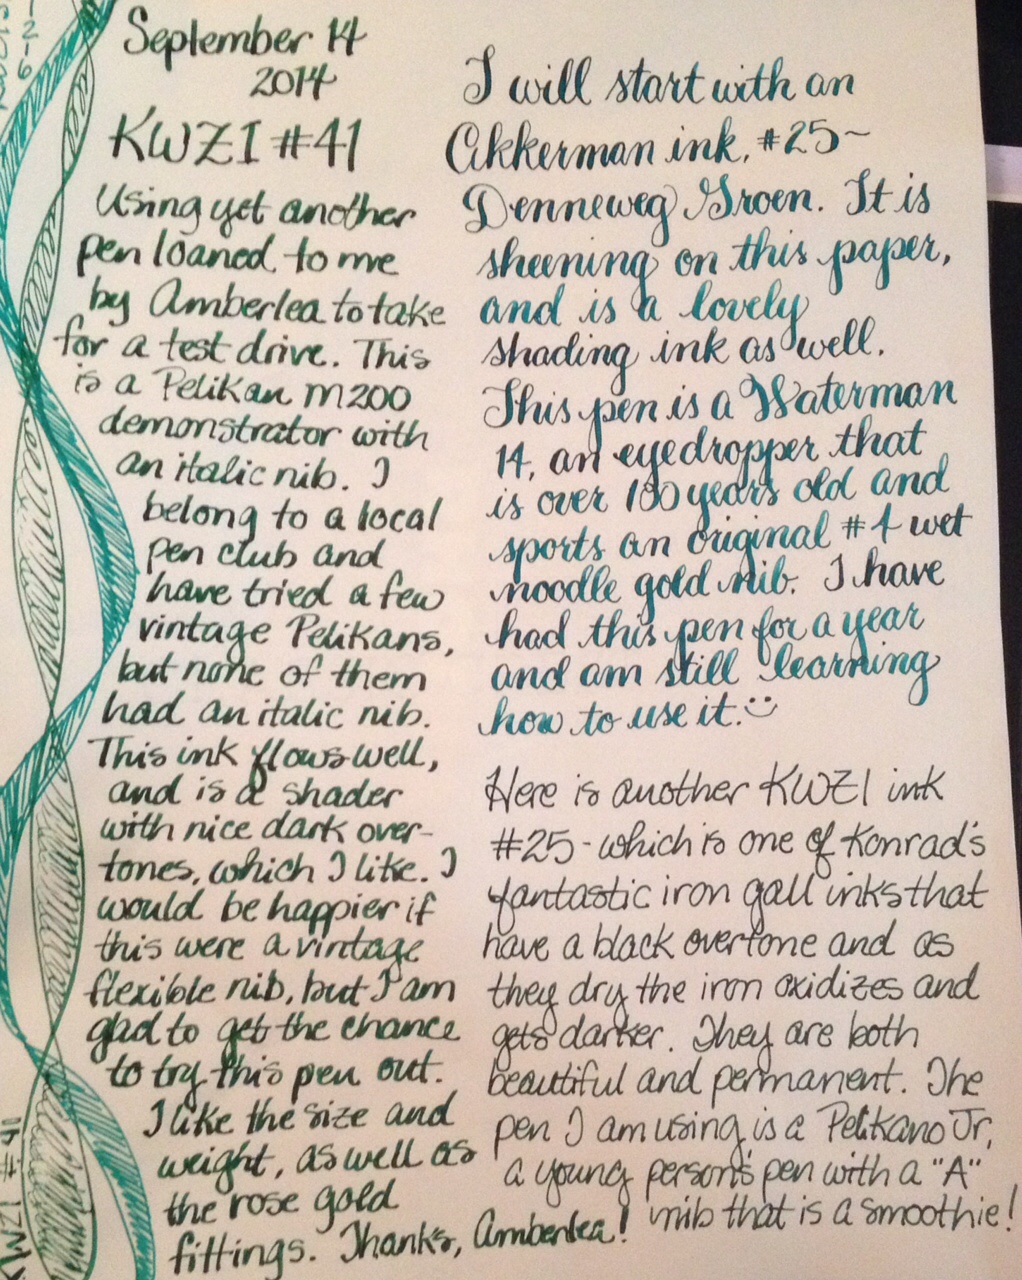 September 14
2014
KWZI #41
Using yet another
pen loaned to me
by Amberlea to take
for a test drive. This
is a Pelikan M200
demonstrator with
an italic nib. I
belong to a local
pen club and
have tried a few
vintage Pelikans,
but none of them
had an italic nib.
This ink flows well,
and is a shader
with nice dark over-
tones, which I like. I
would be happier if
this were a vintage
flexible nib, but I am
glad to get the chance
to try this pen out.
I like the size and
weight, as well as
the rose gold
fittings. Thanks, Amberlea!
I will start with an
Akkerman ink, #25~
Denneweg Groen. It is
sheening on this paper,
and is a lovely
shading ink as well.
This pen is a Waterman
14, an eyedropper that
is over 100 years old and
sports an original #4 wet
noodle gold nib. I have
had this pen for a year
and am still learning
how to use it.
Here is another KWZI ink
#25-which is one of Konrad's
fantastic iron gall inks that
have a black overtone and as
they dry the iron oxidizes and
gets darker. They are both
beautiful and permanent. The
pen I am using is a Pelikano Jr,
a young person's pen with a "A"
nib that is a smoothie!